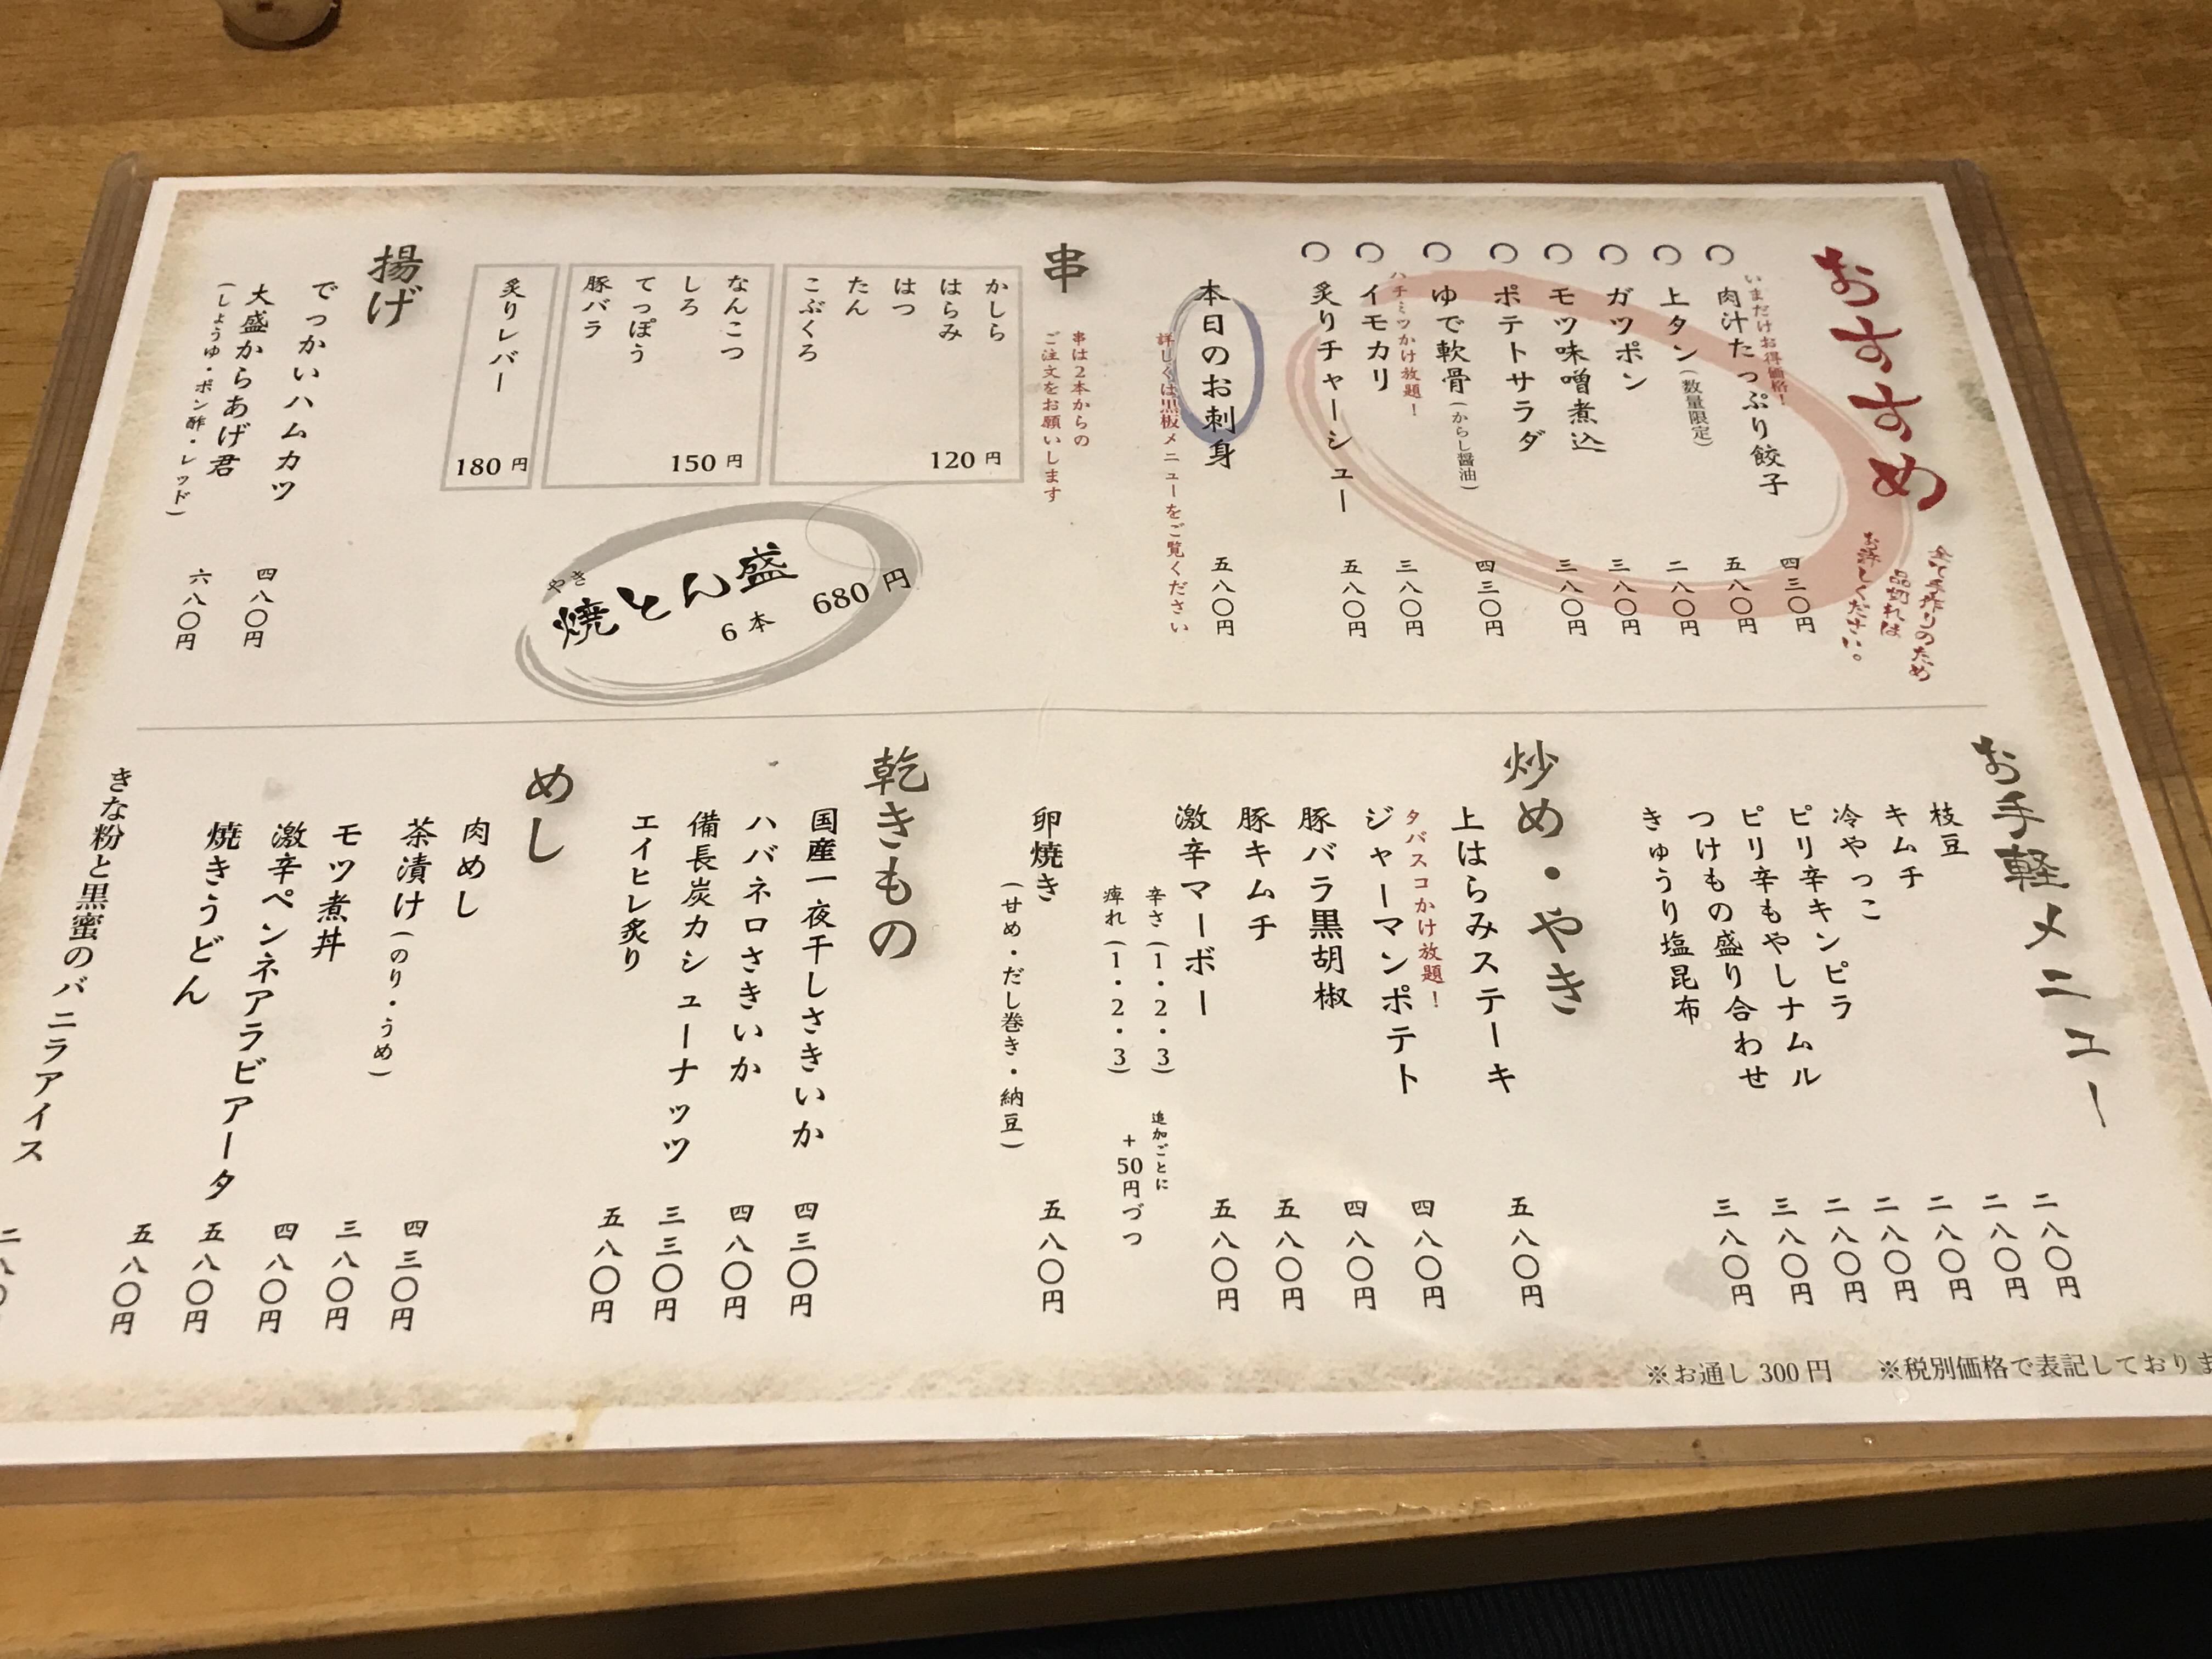 おすすめ
全て手作りのため
品切れは
お許しください。
いまだけお得価格！
〇 肉汁たっぷり餃子 四三〇円
〇 上タン(数量限定) 五八〇円
〇 ガツポン 二八〇円
〇 モツ味噌煮込 三八〇円
〇 ポテトサラダ 三八〇円
〇 ゆで軟骨(からし醤油) 四三〇円
ハチミツかけ放題！
〇 イモカリ 三八〇円
〇 炙りチャーシュー 五八〇円
本日のお刺身 五八〇円
詳しくは黒板メニューをご覧ください
串
串は2本からの
ご注文をお願いします
かしら
はらみ
はつ
たん
こぶくろ
120円
なんこつ
しろ
てっぽう
豚バラ
150円
炙りレバー
180円
やき
焼とん盛
6本 680円
揚げ
でっかいハムカツ 四八〇円
大盛からあげ君 六八〇円
(しょうゆ・ポン酢・レッド)
お手軽メニュー
枝豆 二八〇円
キムチ 二八〇円
冷やっこ 二八〇円
ピリ辛キンピラ 二八〇円
ピリ辛もやしナムル 二八〇円
つけもの盛り合わせ 三八〇円
きゅうり塩昆布 三八〇円
炒め・やき
上はらみステーキ 五八〇円
タバスコかけ放題！
ジャーマンポテト 四八〇円
豚バラ黒胡椒 四八〇円
豚キムチ 五八〇円
激辛マーボー 五八〇円
辛さ(1・2・3)
痺れ(1・2・3)
追加ごとに
+50円づつ
卵焼き 五八〇円
(甘め・だし巻き・納豆)
乾きもの
国産一夜干しさきいか 四三〇円
ハバネロさきいか 四八〇円
備長炭カシューナッツ 三三〇円
エイヒレ炙り 五八〇円
めし
肉めし 四三〇円
茶漬け(のり・うめ) 三八〇円
モツ煮丼 四八〇円
激辛ペンネアラビアータ 五八〇円
焼きうどん 五八〇円
きな粉と黒蜜のバニラアイス 二八〇
※お通し 300円 ※税別価格で表記しておりま